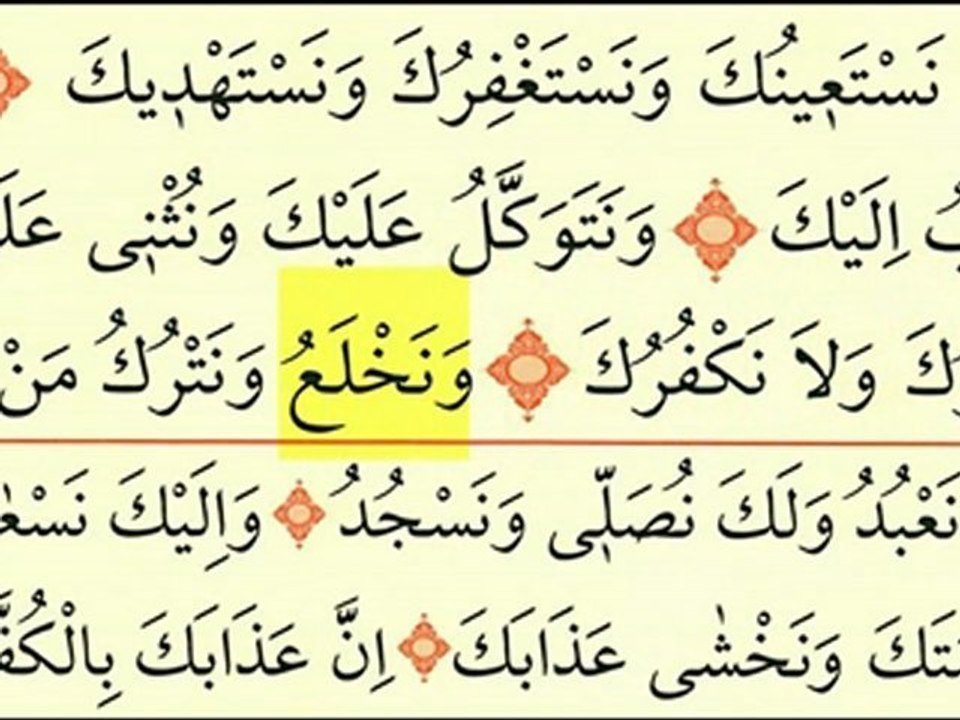 نَسْتَعِينُكَ وَنَسْتَغْفِرُكَ وَنَسْتَهْدِيكَ
اِلَيْكَ وَنَتَوَكَّلُ عَلَيْكَ وَنُثْنِى
وَلاَ نَكْفُرُكَ وَنَخْلَعُ وَنَتْرُكُ مَنْ
نَعْبُدُ وَلَكَ نُصَلِّى وَنَسْجُدُ وَاِلَيْكَ
وَنَخْشٰى عَذَابَكَ اِنَّ عَذَابَكَ